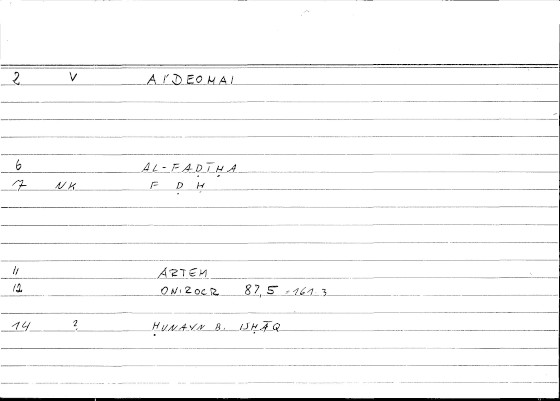 2 V AIDEOMAI
6 AL-FAḌĪḤA
7 NK F Ḍ Ḥ
11 ARTEM
12 ONIROCR 87,5 = 161.3
14 ? ḤUNAYN B. ISḤĀQ